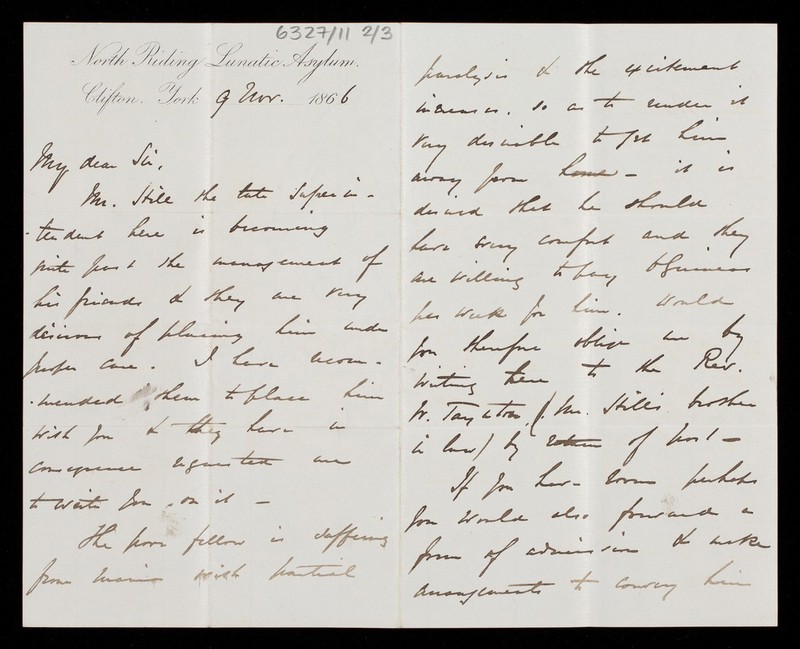 6327/11 2/3
North Riding Lunatic Asylum.
Clifton. York 9 Nov. 1866
My dear Sir,
Mr. Hill the late Superin-
-tendent here is becoming
quite past the management of
his friends & they are very
desirous of placing him under
proper care. I have recom-
-mended them to place him
with you & they have in
consequence requested me
to write you on it —
The poor fellow is suffering
from mania with partial
paralysis & the excitement
increases. so as to render it
very desirable to get him
away from home — it is
desired that he should
have every comfort and they
are willing to pay 6 guineas
per week for him. Would
you therefore oblige me by
writing here to the Rev.
W. (Mr. Hill's brother
in law) by return of post —
If you have room perhaps
you would also forward a
form of admission & make
arrangements to convey him